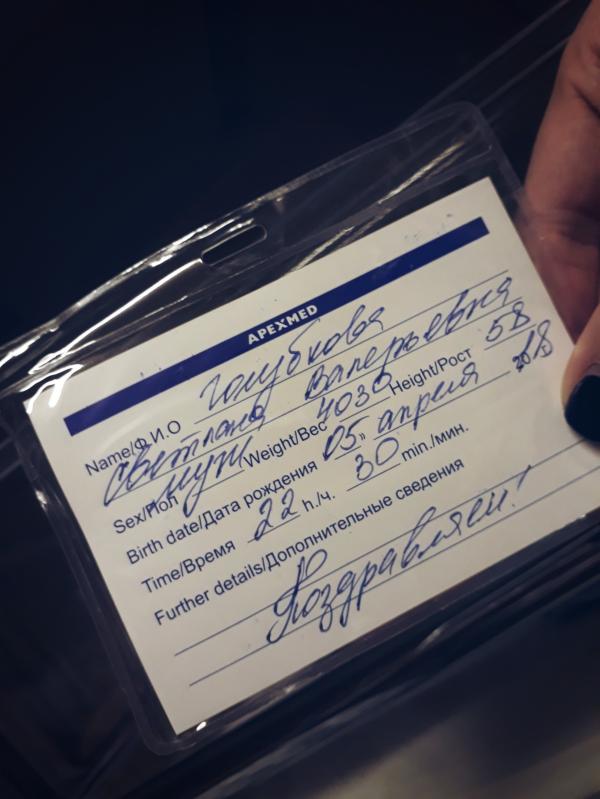 APEXMED
Name/Ф.И.О Голубкова
Светлана Валерьевна
Sex/Пол муж Weight/Вес 4030 Height/Рост 58
Birth date/Дата рождения 05 " апреля 2018
Time/Время 22 h./ч. 30 min./мин.
Further details/Дополнительные сведения
Поздравляем!